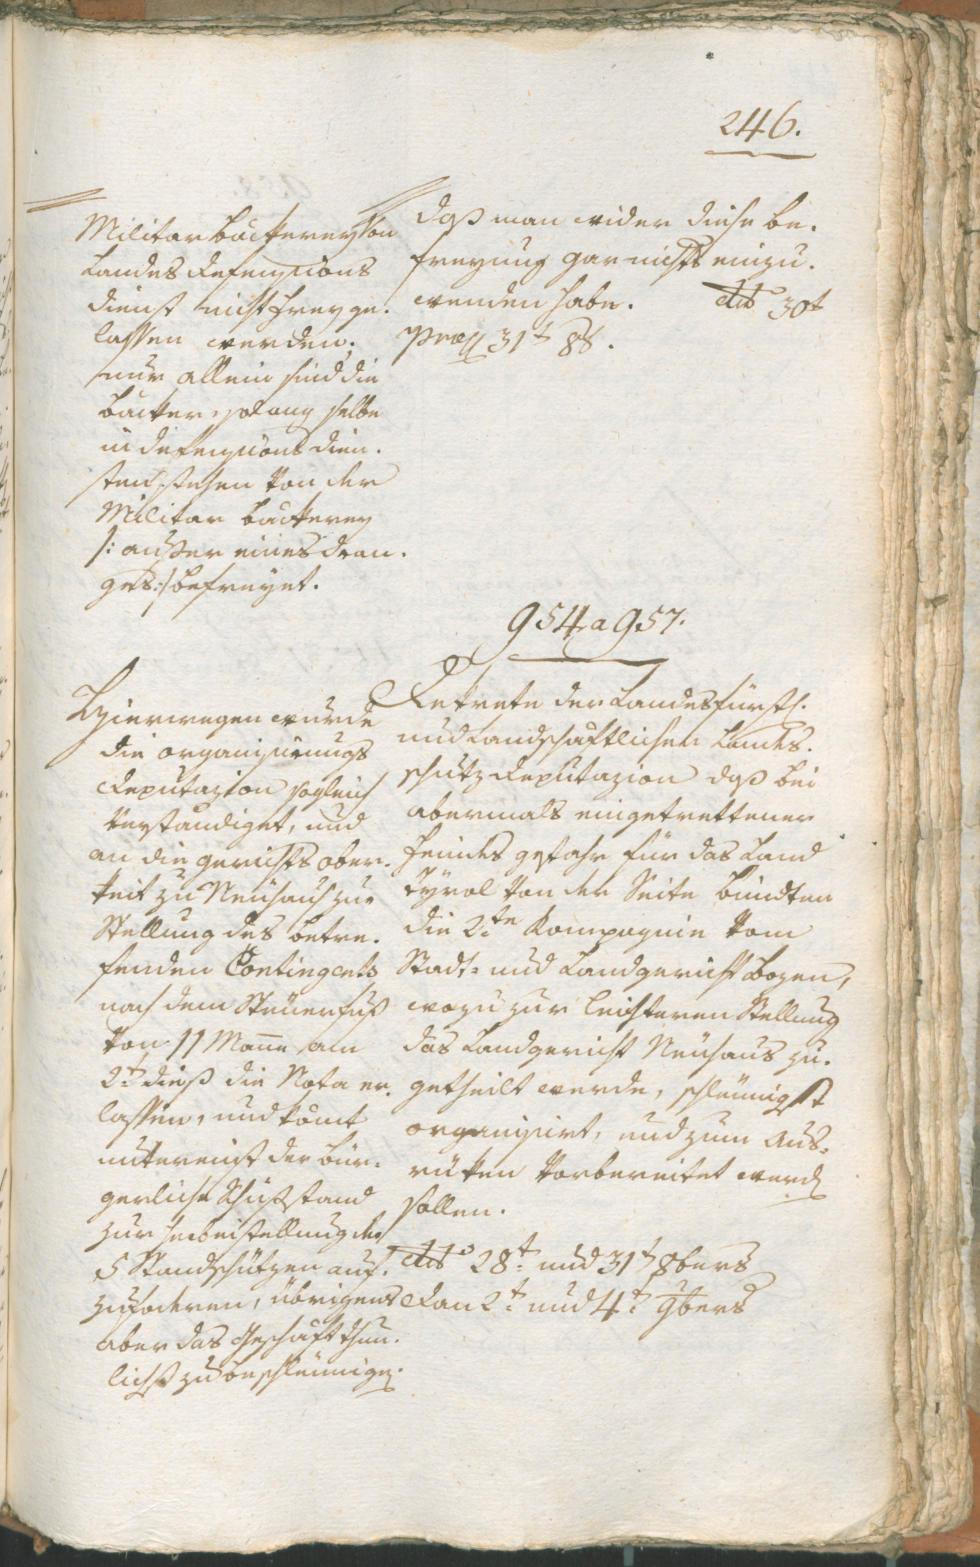 246.
Militar bäckerey von
Landes Defensions
dienst nicht frey ge.
lassen werden,
nur allein sind die
bäcker, solang selbe
in defensions dien.
sten stehen von der
Militar bäckerey
/: ausser eines dran.
ges :/ befreyet.
daß man wider diese be.
freyung gar nichts einzu.
wenden habe. dto 30t
Pres 31t 8b.
954 a 957.
Hierwegen wurde
die organisirungs
Deputazion sogleich
verständiget, und
an die gerichts ober.
keit zu Neuhaus zur
Stellung des betre.
fenden Contingents
nach dem Steuerfuß
von 11 Mann am
2t dieß die Nota er.
lassen, und kömt
untereinst der bür.
gerliche Schießstand
zur herbeistellung der
5 Standschützen auf.
zufodern, übrigens
aber das Geschäft thun.
lichst zu beschleunigen.
Dekrete der Landesfürstl.
und Landschaftlichen Landes.
schutz Deputazion daß bei
abermals eingetrettener
feindes gefahr für das Land
Tyrol von der Seite bündten
die 2te Kompagnie vom
Stadt- und Landgericht Bozen,
wozu zur leichteren Stellung
das Landgericht Neuhaus zu.
getheilt werde, schleunigst
organisirt, und zum aus-
rüken vorbereitet werden
sollen.
dto 28t und 31t 8bers
den 2t und 4t 9bers